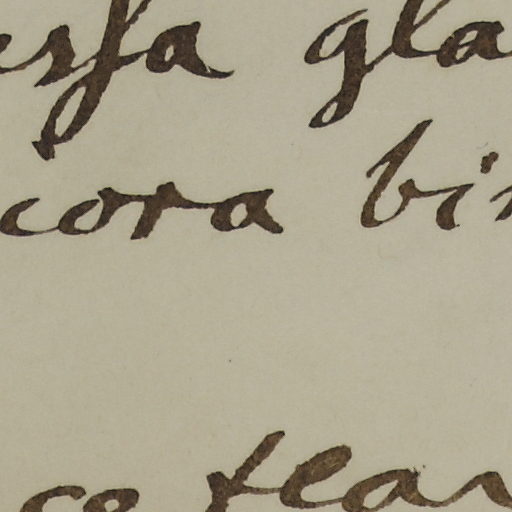 essa gla
cora bin
ce fear